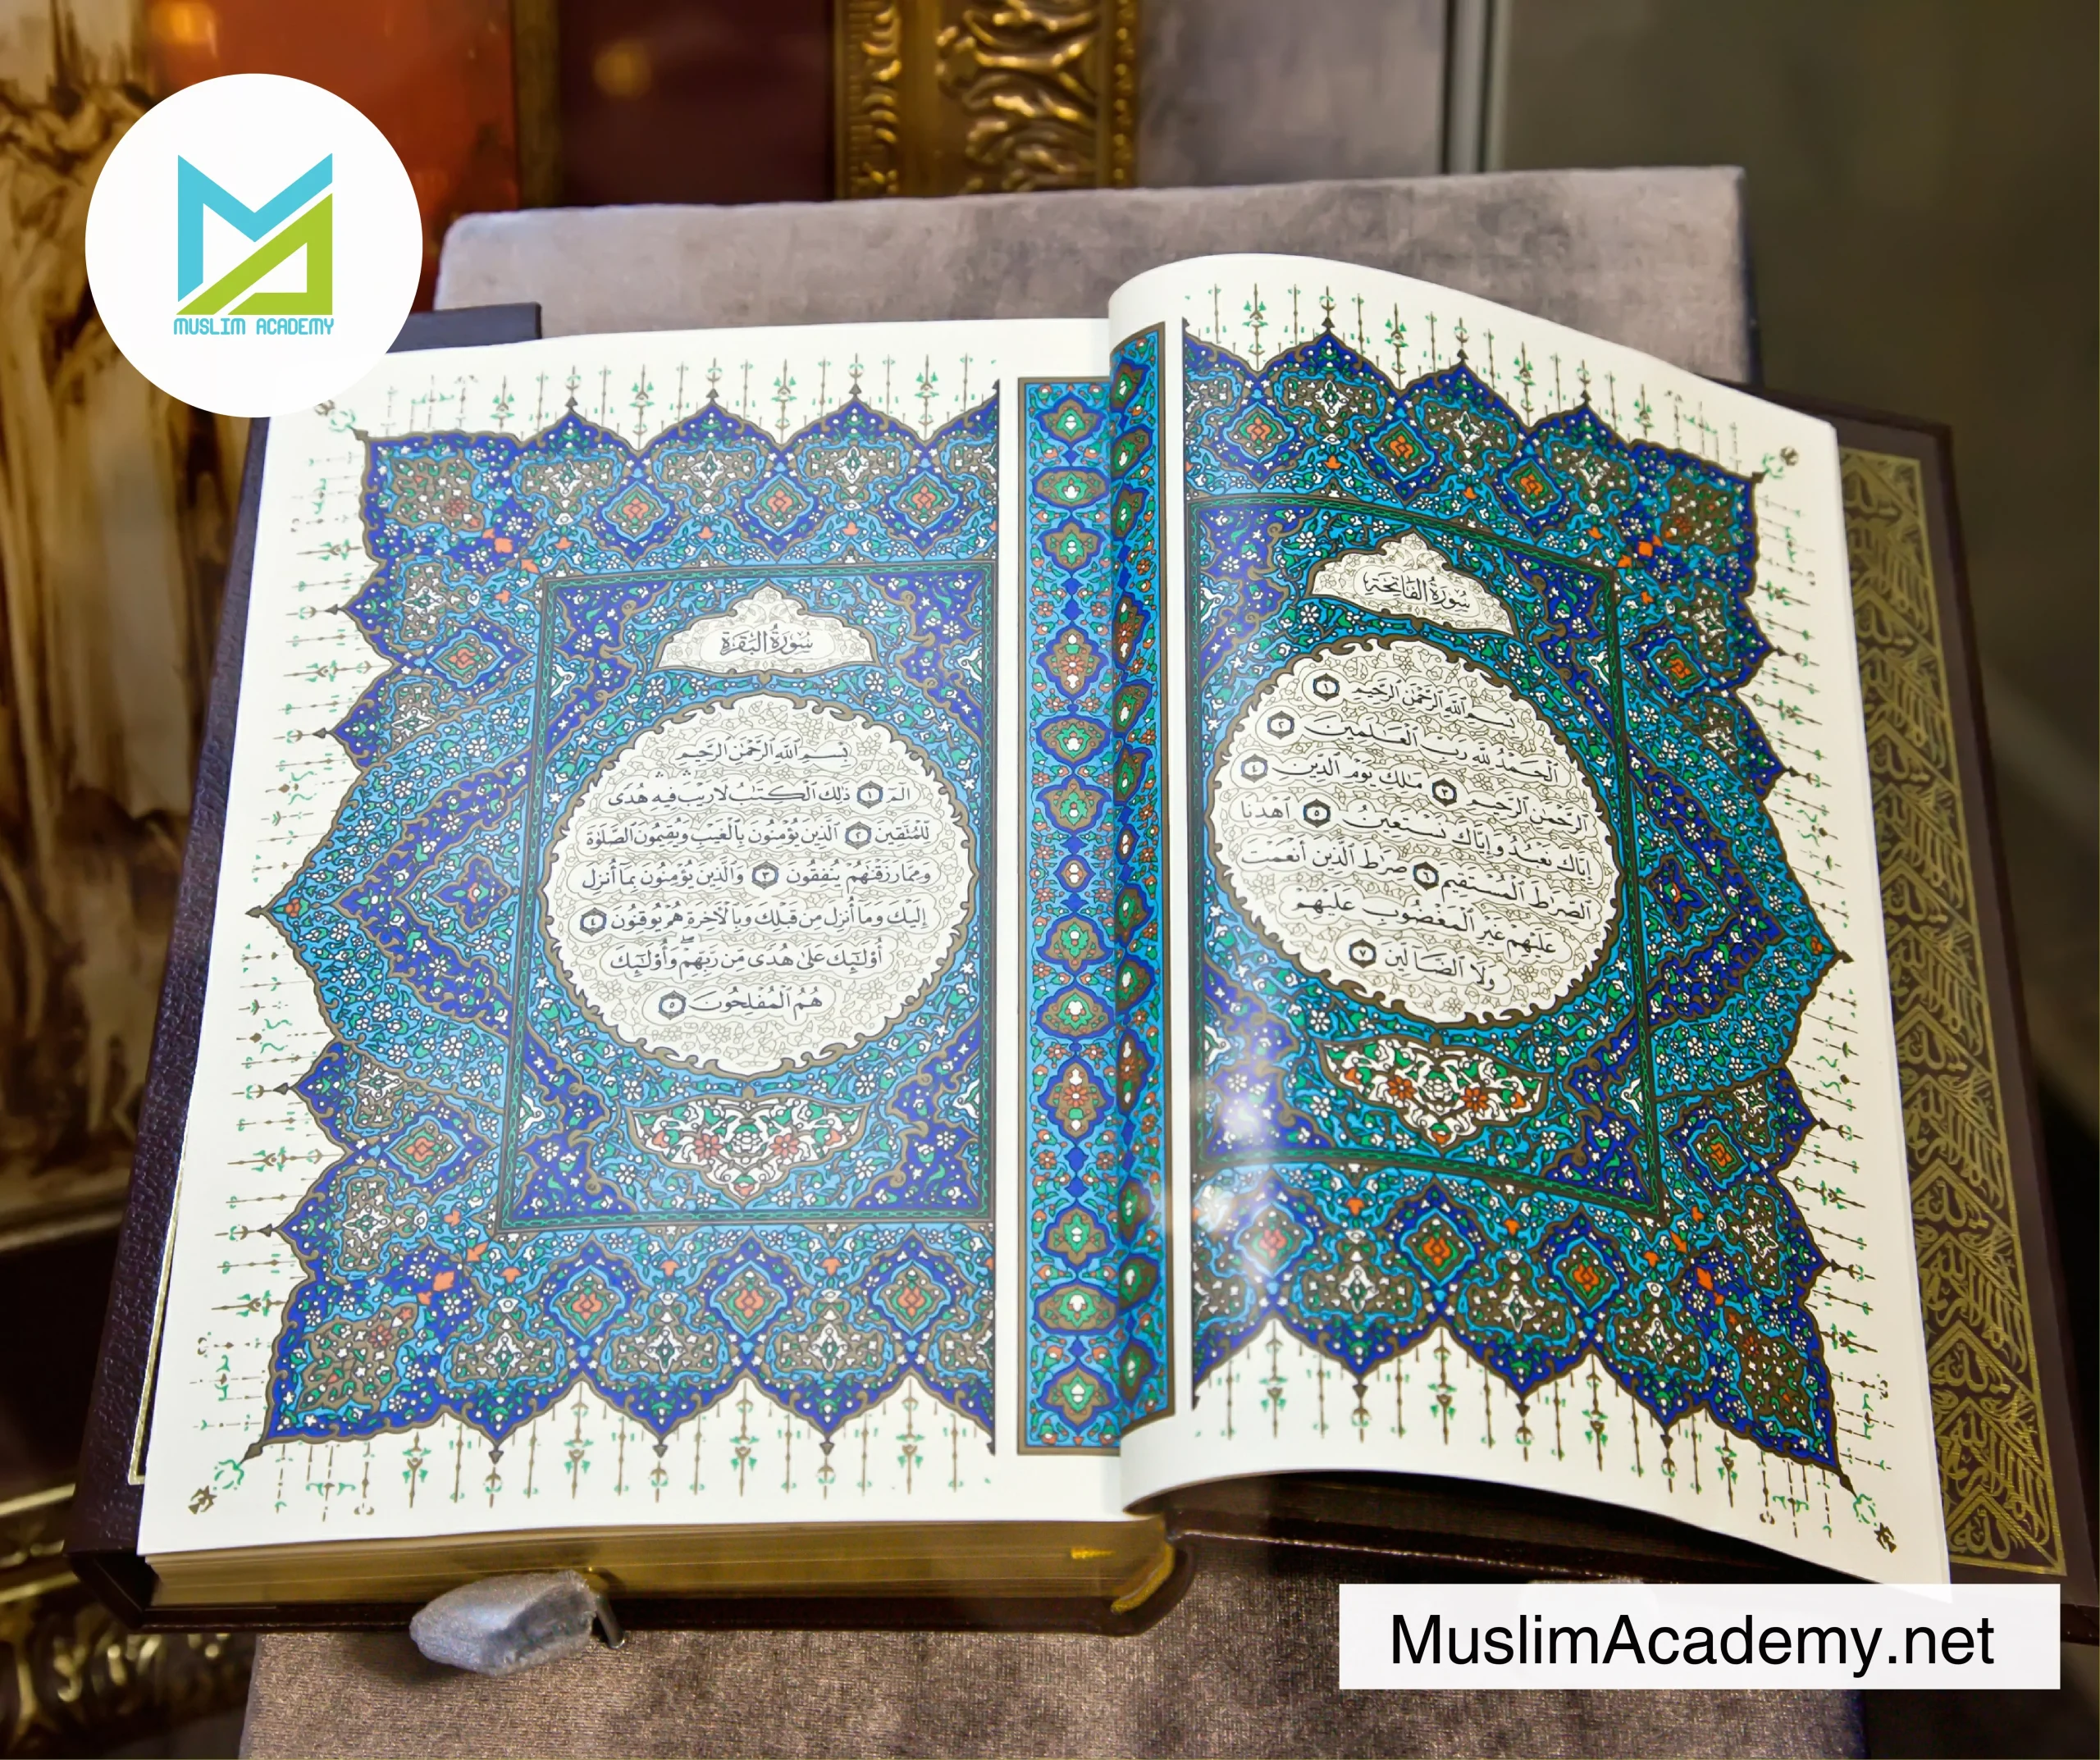 MUSLIM ACADEMY
سُورَةُ الفَاتِحَة
بِسْمِ ٱللَّهِ ٱلرَّحْمَٰنِ ٱلرَّحِيمِ ١
ٱلْحَمْدُ لِلَّهِ رَبِّ ٱلْعَٰلَمِينَ ٢
ٱلرَّحْمَٰنِ ٱلرَّحِيمِ ٣ مَٰلِكِ يَوْمِ ٱلدِّينِ ٤
إِيَّاكَ نَعْبُدُ وَإِيَّاكَ نَسْتَعِينُ ٥ ٱهْدِنَا
ٱلصِّرَٰطَ ٱلْمُسْتَقِيمَ ٦ صِرَٰطَ ٱلَّذِينَ أَنْعَمْتَ
عَلَيْهِمْ غَيْرِ ٱلْمَغْضُوبِ عَلَيْهِمْ
وَلَا ٱلضَّآلِّينَ ٧
سُورَةُ البَقَرَة
بِسْمِ ٱللَّهِ ٱلرَّحْمَٰنِ ٱلرَّحِيمِ
الٓمٓ ١ ذَٰلِكَ ٱلْكِتَٰبُ لَا رَيْبَ ۛ فِيهِ ۛ هُدًى
لِّلْمُتَّقِينَ ٢ ٱلَّذِينَ يُؤْمِنُونَ بِٱلْغَيْبِ وَيُقِيمُونَ ٱلصَّلَوٰةَ
وَمِمَّا رَزَقْنَٰهُمْ يُنفِقُونَ ٣ وَٱلَّذِينَ يُؤْمِنُونَ بِمَآ أُنزِلَ
إِلَيْكَ وَمَآ أُنزِلَ مِن قَبْلِكَ وَبِٱلْءَاخِرَةِ هُمْ يُوقِنُونَ ٤
أُو۟لَٰٓئِكَ عَلَىٰ هُدًى مِّن رَّبِّهِمْ ۖ وَأُو۟لَٰٓئِكَ
هُمُ ٱلْمُفْلِحُونَ ٥
MuslimAcademy.net